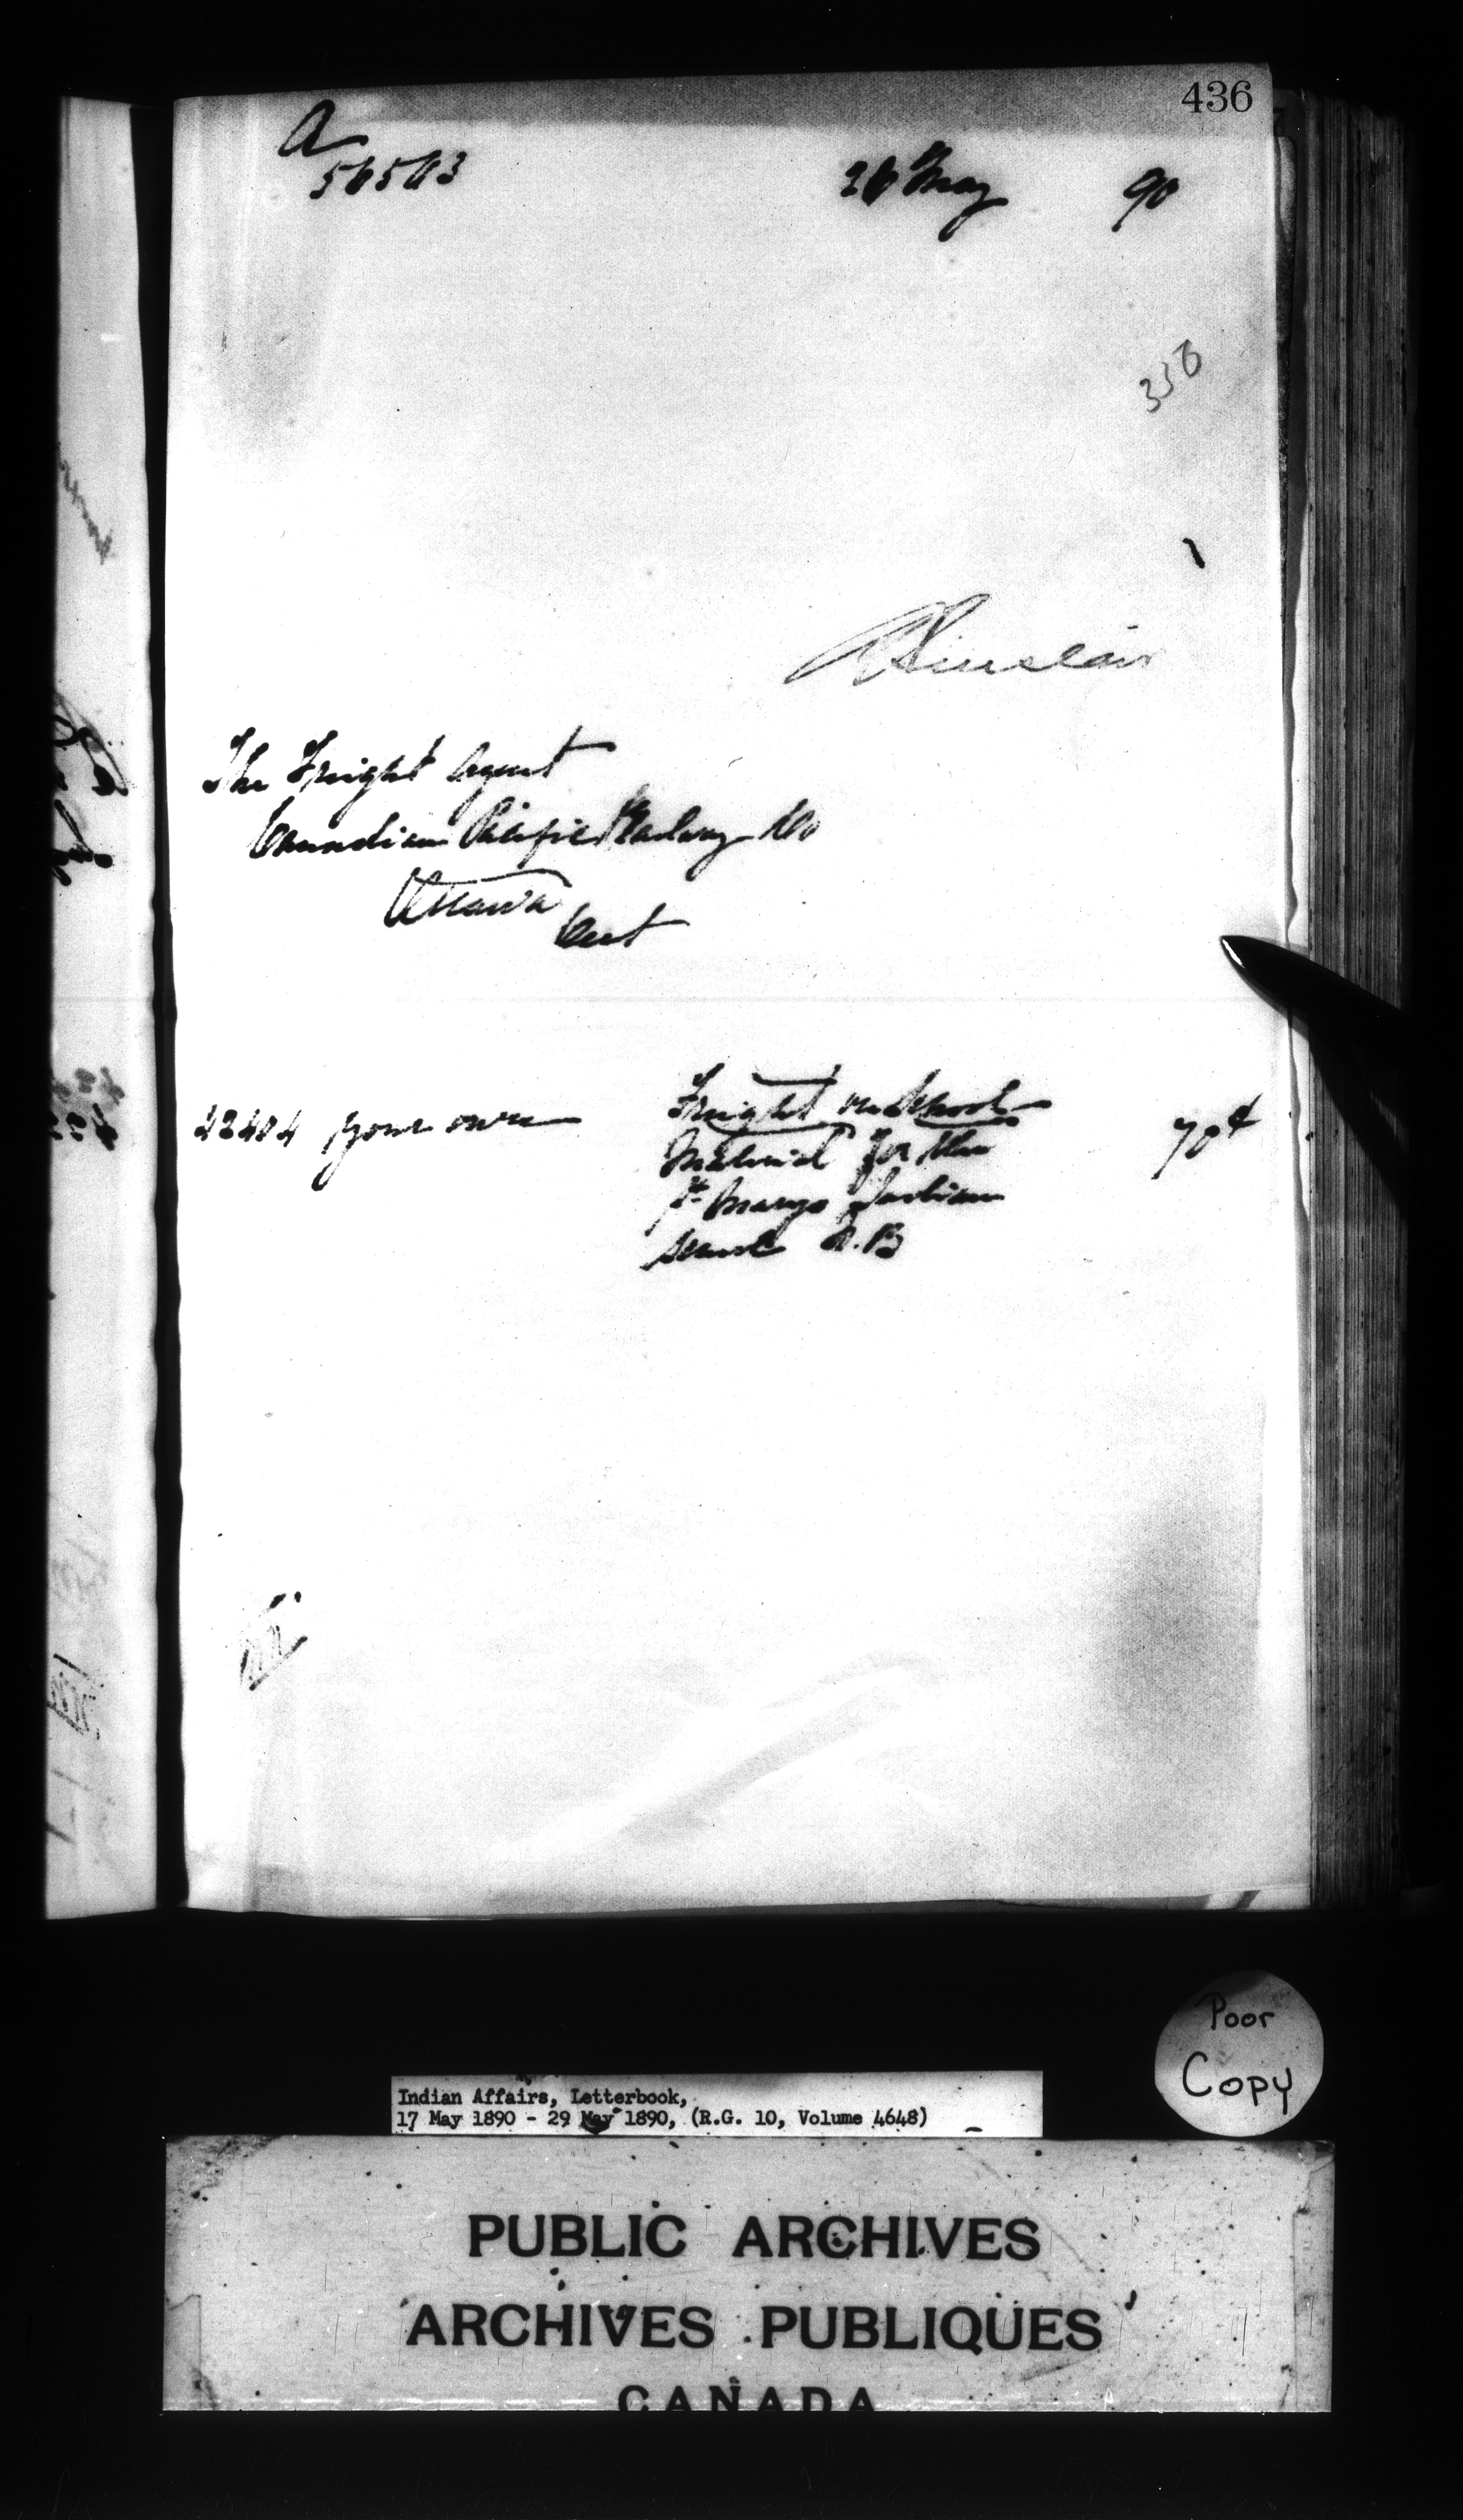 436
A
56503
26 May 90
338
A Sinclair
The Freight Agent
Canadian Pacific Railway Co
Ottawa
Ont
42484 your own
Freight on School
Material for the
St Marys Indian
School N.B
70¢
Poor
Copy
Indian Affairs, Letterbook,
17 May 1890 - 29 May 1890, (R.G. 10, Volume 4648)
PUBLIC ARCHIVES
ARCHIVES PUBLIQUES
CANADA